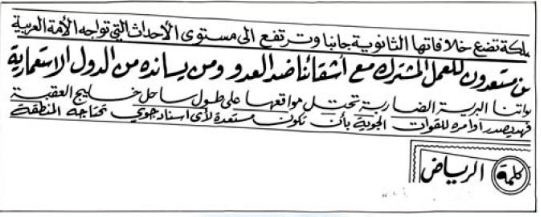 ملكة تضع خلافاتها الثانوية جانبا وترتفع الى مستوى الأحداث التي تواجه الأمة العربية
ن مستعدون للعمل المشترك مع أشقائنا ضد العدو ومن يسانده من الدول الاستعمارية
واتنا البرية الضاربة تحتل مواقعها على طول ساحل خليج العقبة
فهد يصدر اوامره للقوات الجوية بأن تكون مستعدة لأى اسناد جوي تحتاجه المنطقة
كلمة الرياض